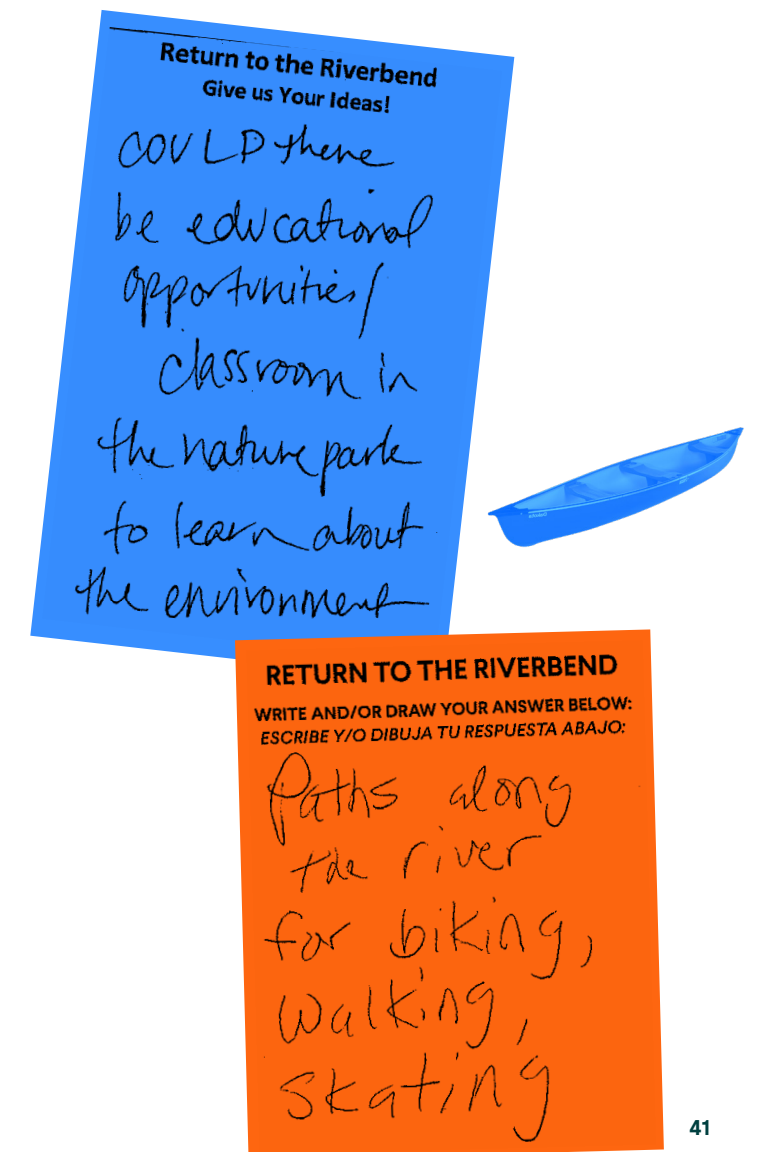 Return to the Riverbend
Give us Your Ideas!
COULD there
be educational
opportunities/
classroom in
the nature park
to learn about
the environment
RETURN TO THE RIVERBEND
WRITE AND/OR DRAW YOUR ANSWER BELOW:
ESCRIBE Y/O DIBUJA TU RESPUESTA ABAJO:
Paths along
the river
for biking,
walking,
skating
41